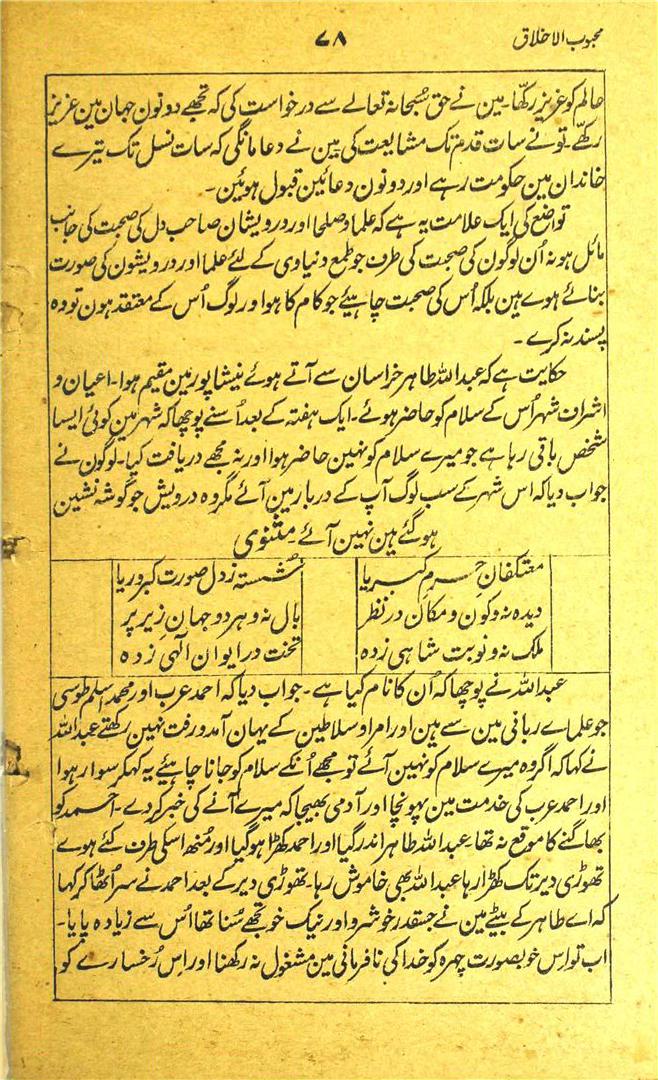 محبوب الاخلاق
۷۸
عالم کو عزیز رکھا۔ مین نے حق سُبحانہ تعالے سے درخواست کی کہ تجھے دونون جہان مین عزیز
رکھے۔ تونے سات قدم تک مشایعت کی مین نے دعا مانگی کہ سات نسل تک تیرے
خاندان مین حکومت رہے اور دونون دعائین قبول ہوئین۔
تواضع کی ایک علامت یہ ہے کہ علما و صلحا اور درویشان صاحب دل کی صحبت کی جانب
مائل ہو نہ اُن لوگون کی صحبت کی طرف جو طمع دنیاوی کے لئے علما اور درویشون کی صورت
بنائے ہوے ہین بلکہ اُس کی صحبت چاہیئے جو کام کا ہو اور لوگ اُس کے معتقد ہون تو وہ
پسند نہ کرے۔
حکایت ہے کہ عبداللہ طاہر خراسان سے آتے ہوئے نیشاپور مین مقیم ہوا۔ اعیان و
اشراف شہر اُس کے سلام کو حاضر ہوئے۔ ایک ہفتہ کے بعد اُسنے پوچھا کہ شہر مین کوئی ایسا
شخص باقی رہا ہے جو میرے سلام کو نہین حاضر ہوا اور نہ مجھے دریافت کیا۔ لوگون نے
جواب دیا کہ اس شہر کے سب لوگ آپ کے دربار مین آئے مگر وہ درویش جو گوشہ نشین
ہو گئے ہین نہین آئے۔ مثنوی
معتکفانِ حرمِ کبریا
شُستہ ز دل صورت کبر و ریا
دیدہ نہ و کون و مکان در نظر
بال نہ و ہر دو جہان زیر پر
ملک نہ و نوبت شاہی زدہ
تخت در ایوان الٰہی زدہ
عبداللہ نے پوچھا کہ اُن کا نام کیا ہے۔ جواب دیا کہ احمد عرب اور محمد اسلم طوسی
جو علماے ربانی مین سے ہین اور امرا و سلاطین کے یہان آمد و رفت نہین رکھتے عبداللہ
نے کہا کہ اگر وہ میرے سلام کو نہین آئے تو مجھے اُنکے سلام کو جانا چاہیئے یہ کہکر سوار ہوا
اور احمد عرب کی خدمت مین پہونچا اور آدمی بھیجا کہ میرے آنے کی خبر کردے۔ احمد کو
بھاگنے کا موقع نہ تھا۔ عبداللہ طاہر اندر گیا اور احمد کھڑا ہوگیا اور مُنھ اسکی طرف کئے ہوے
تھوڑی دیر تک کھڑا رہا عبداللہ بھی خاموش رہا۔ تھوڑی دیر کے بعد احمد نے سر اُٹھا کر کہا
کہ اے طاہر کے بیٹے مین نے جسقدر خوشرو اور نیک خو تجھے سُنا تھا اُس سے زیادہ پایا۔
اب تو اِس خوبصورت چہرہ کو خدا کی نافرمانی مین مشغول نہ رکھنا اور اِس رُخسارے کو